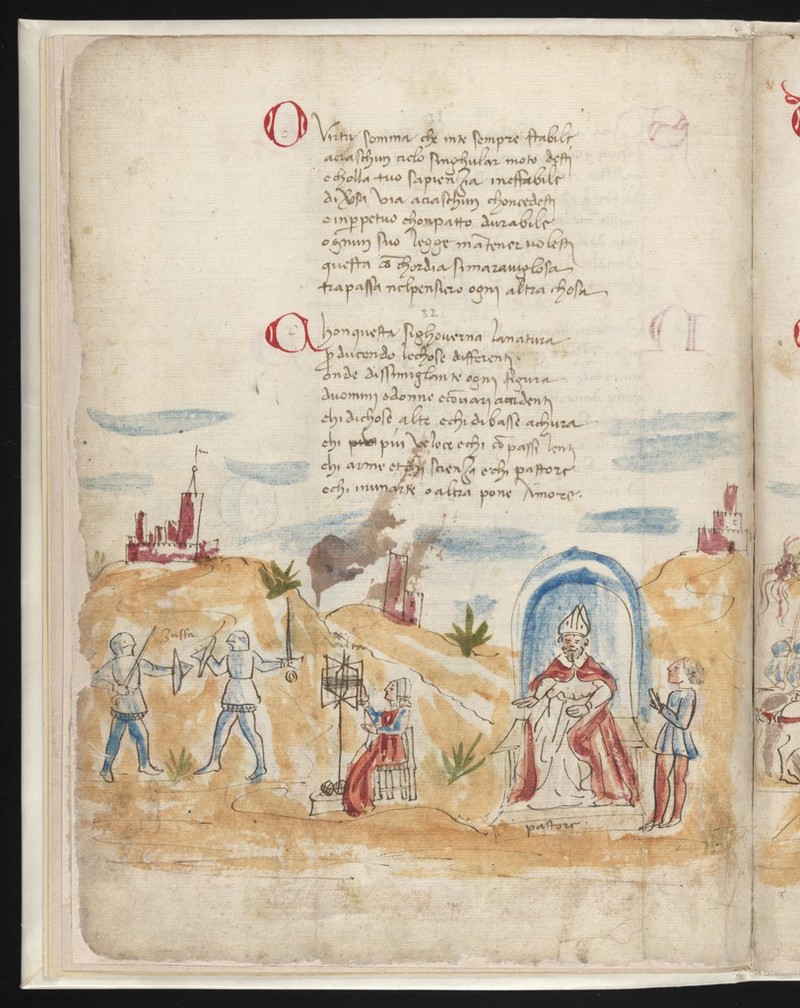 O Virtu somma che inte sempre stabile
aciaschun cielo singhular moto desti
e cholla tuo sapienzia ineffabile
di v͞sa via aciaschun choncedesti
e inp̱petuo chonpatto durabile
ognun suo legge mātener volesti
questa cō chordia simaraviglosa
trapassa nelpensiero ogni altra chosa
32
C honquesta sighoverna lanatura
p̱ducendo lechose differenti
onde dissimigliante ogni figura
duomini edonne ecō vari acidenti
chi dichose alte echi dibasse achura
chi piu piu veloce echi cō passi lenti
chi arme et chi scienzia echi pastore
echi inun arte o altra pone Amore.
zuffa
pastore